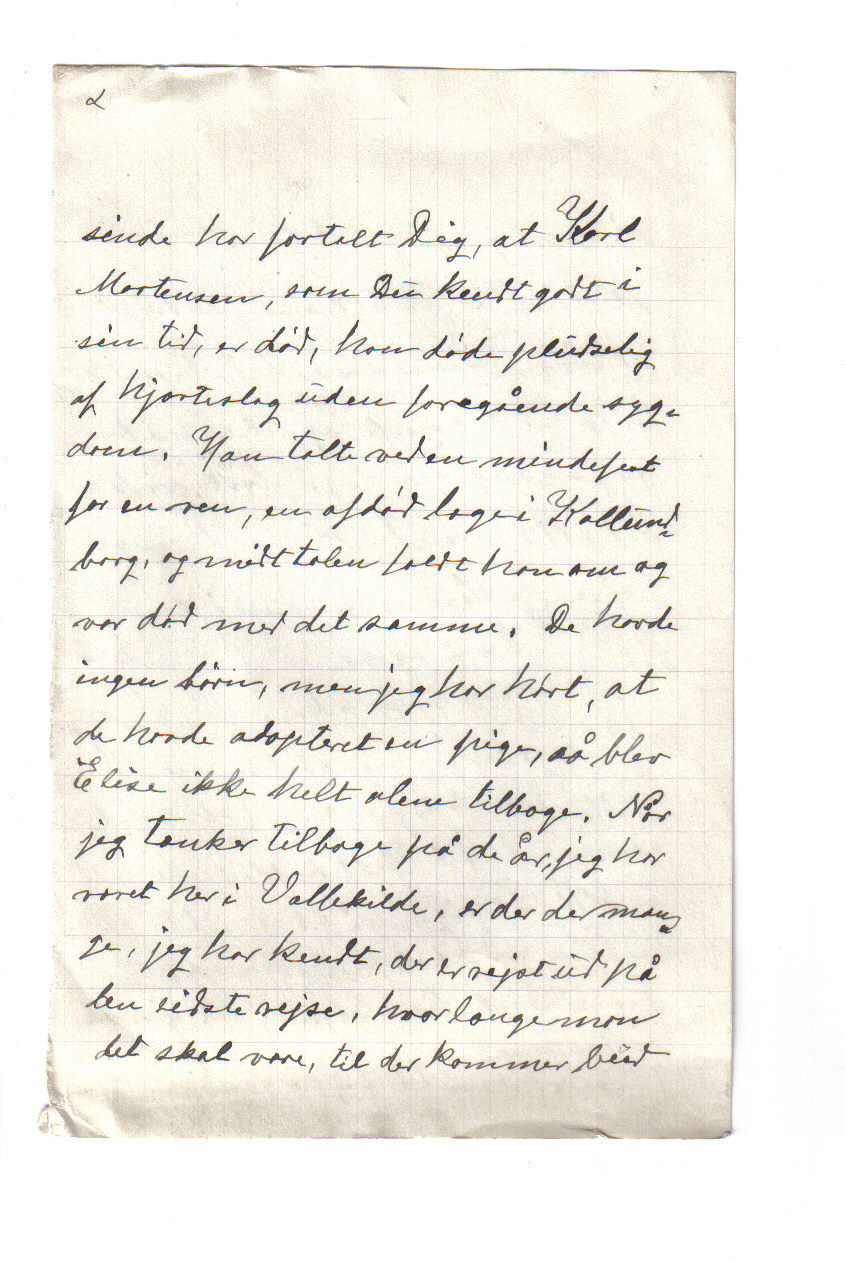 2
sinde har fortalt Dig, at Karl
Mortensen, som Du kendt godt i
sin tid, er død, han døde pludselig
af hjerteslag uden foregående syg-
dom. Han talte ved en mindefest
for en ven, en afdød læge i Kallund-
borg, og midt talen faldt han om og
var død med det samme. De havde
ingen børn, men jeg har hørt, at
de havde adopteret en pige, så blev
Elise ikke helt alene tilbage. Når
jeg tænker tilbage på de år, jeg har
været her i Vallekilde, er der der man-
ge, jeg har kendt, der er rejst ud på
den sidste rejse, hvorlænge mon
det skal vare, til der kommer bud